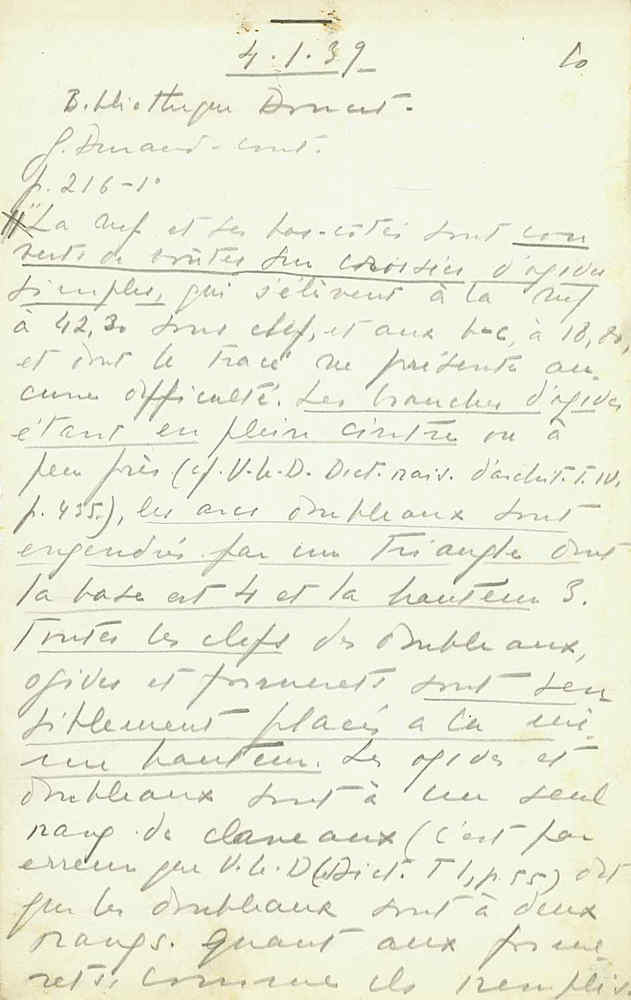 4.1.39
10
Bibliothèque Doucet.
G. Durand - cont.
p. 216 - 1°
"La nef et ses bas-côtés sont cou
verts de voûtes sur croisées d'ogives
simples, qui s'élèvent à la nef
à 42,30 sous clef, et aux b-c, à 18,80,
et dont le tracé ne présente au-
cune difficulté. Les branches d'ogives
étant en plein cintre ou à
peu près (cf. V.-l.-D. Dict. rais. d'archit. T. IV,
p. 435), les arcs doubleaux sont
engendrés par un triangle dont
la base est 4 et la hauteur 3.
Toutes les clefs des doubleaux,
ogives et formerets sont sen
siblement placées a la mê-
me hauteur. Les ogives et
doubleaux sont à un seul
rang de claveaux (c'est par
erreur que V.-l.-D (Dict. T I, p. 55) dit
que les doubleaux sont à deux
rangs. Quant aux forme-
rets, comme ils remplis-